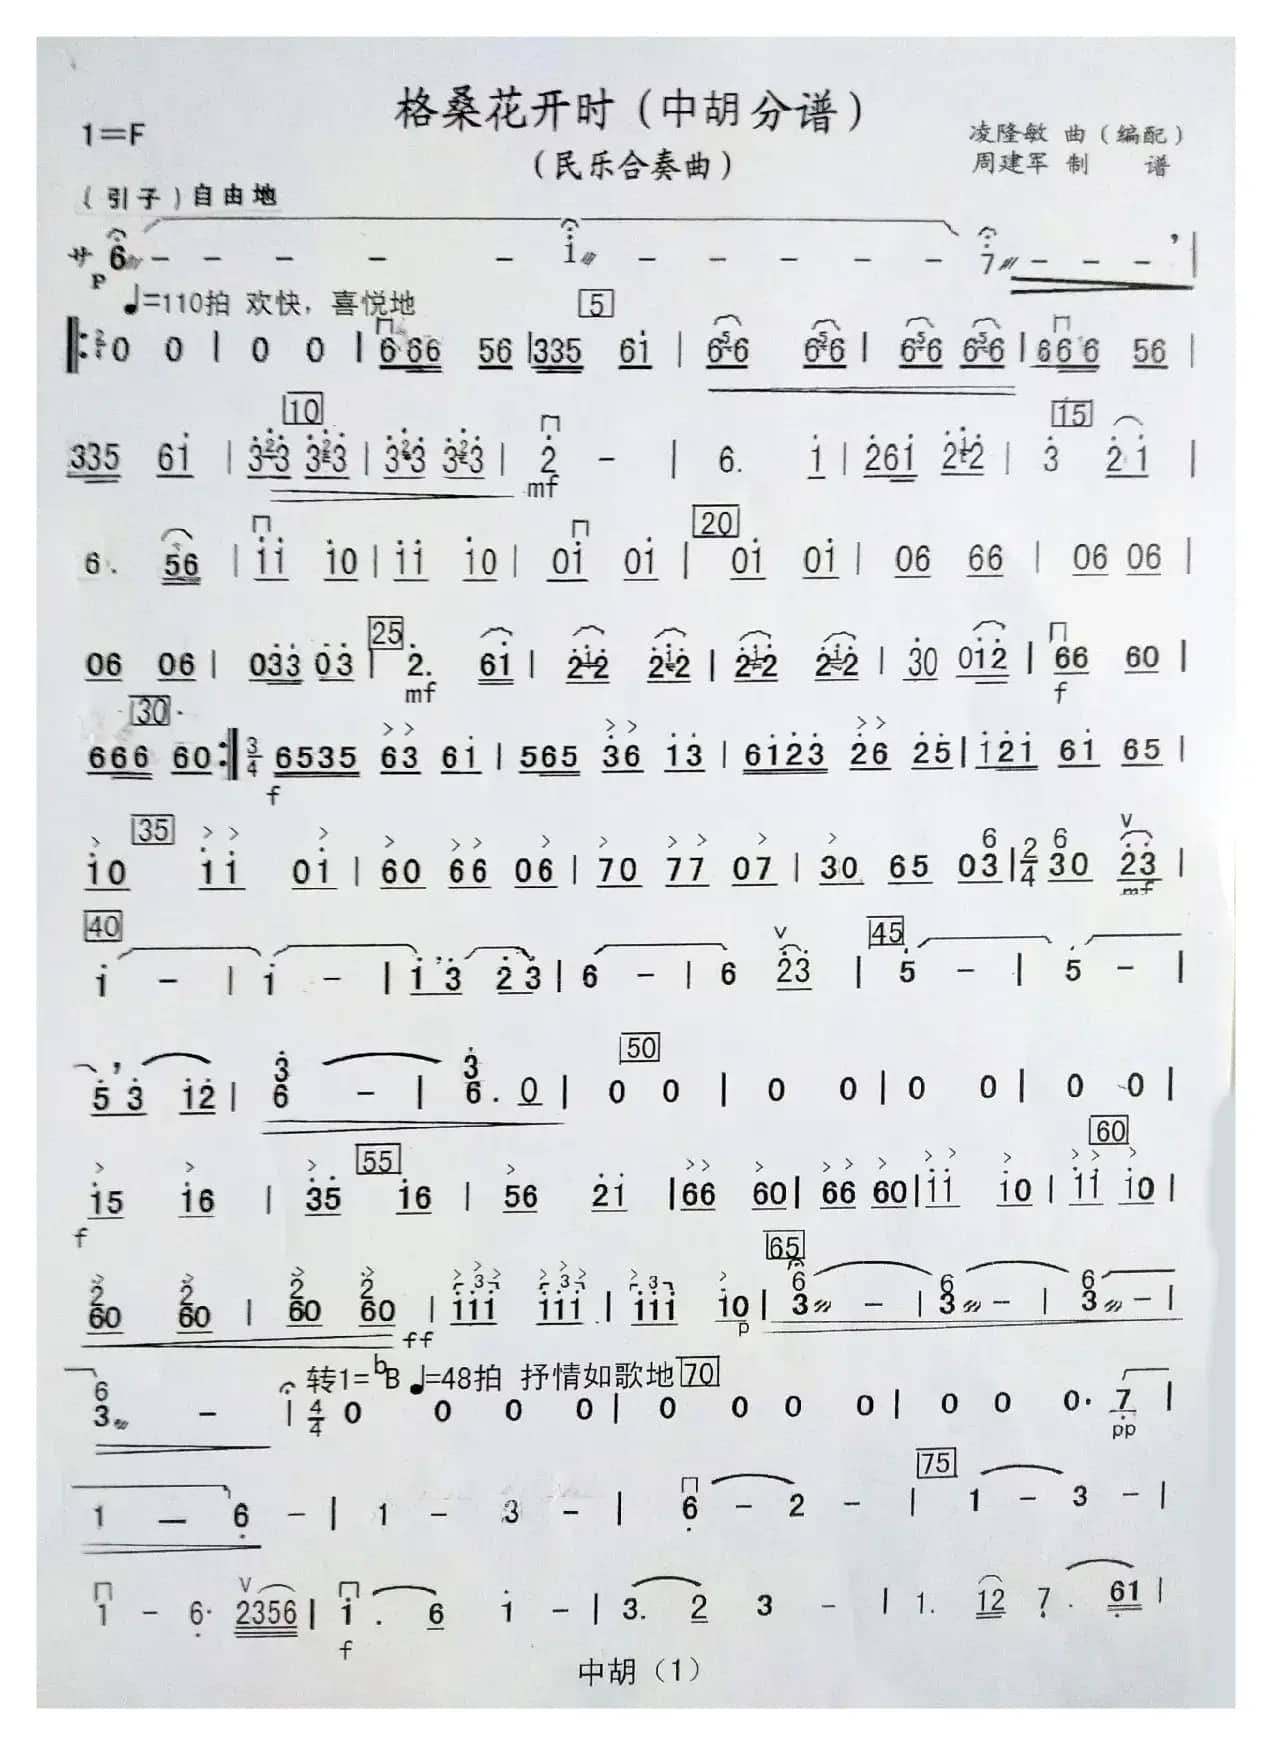 格桑花开时（中胡分谱）
1=F
（民乐合奏曲）
凌隆敏 曲（编配）
周建军 制 谱
（引子）自由地
サ 6 - - - - - i - - - - - 7 - - - |
P
♩=110拍 欢快，喜悦地 5
2/4 0 0 | 0 0 | 6666 56 | 3335 6i | 656 656 | 656 656 | 6666 56 |
10 15
335 6i | 323 323 | 323 323 | 2 - | 6. i | 26i 212 | 3 2i |
mf
20
6. 56 | ii i0 | ii i0 | 0i 0i | 0i 0i | 06 66 | 06 06 |
25
06 06 | 033 03 | 2. 6i | 212 212 | 212 212 | 30 012 | 66 60 |
mf f
30
666 60 :| 3/4 6535 63 6i | 565 36 i3 | 6i23 26 25 | i2i 6i 65 |
f
35
i0 ii 0i | 60 66 06 | 70 77 07 | 30 65 03 | 2/4 30 23 |
6 6
mf
40 45
i - | i - | i3 23 | 6 - | 6 23 | 5 - | 5 - |
50
53 i2 | 3 6 - | 3 6. 0 | 0 0 | 0 0 | 0 0 | 0 0 |
55 60
i5 i6 | 35 i6 | 56 2i | 66 60 | 66 60 | ii i0 | ii i0 |
f
65
2 60 2 60 | 2 60 2 60 | iii iii | iii i0 | 6 3 - | 6 3 - | 6 3 - |
3 3 3
ff p
转1=bB ♩=48拍 抒情如歌地 70
6 3 - | 4/4 0 0 0 0 | 0 0 0 0 | 0 0 0. 7 |
pp
75
1 - 6 - | 1 - 3 - | 6 - 2 - | 1 - 3 - |
1 - 6. 2356 | i. 6 i - | 3. 2 3 - | 1. 12 7. 61 |
f
中胡（1）